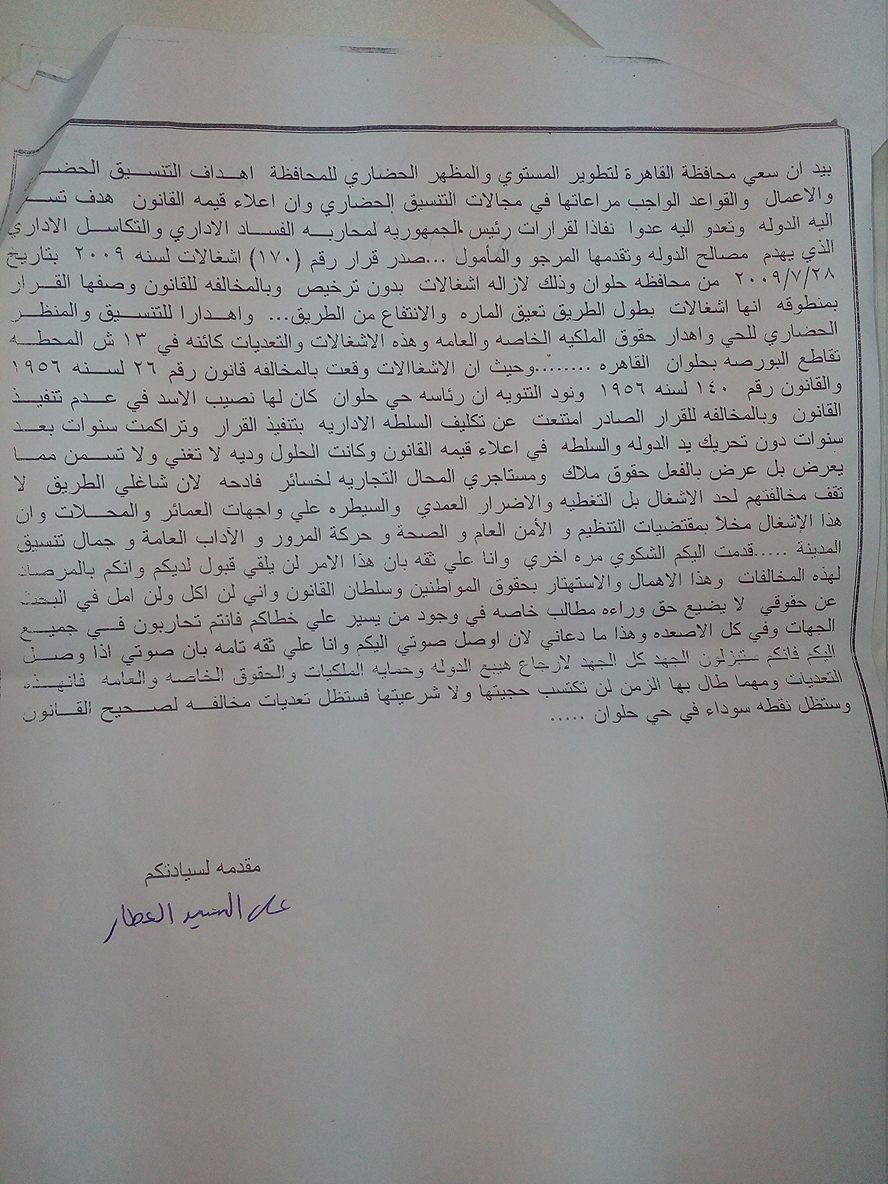 بيد ان سعي محافظة القاهرة لتطوير المستوي والمظهر الحضاري للمحافظة اهداف التنسيق
والاعمال والقواعد الواجب مراعاتها في مجالات التنسيق الحضاري وان اعلاء قيمه القانون هدف
اليه الدوله وتعدو اليه عدوا نفاذا لقرارات رئيس الجمهوريه لمحاربه الفساد الاداري والتكاسل الاداري
الذي يهدم مصالح الدوله وتقدمها المرجو والمأمول ...صدر قرار رقم (١٧٠) اشغالات لسنه ٢٠٠٩ بتاريخ
٢٠٠٩/٧/٢٨ من محافظه حلوان وذلك لازاله اشغالات بدون ترخيص وبالمخالفه للقانون وصفها القرار
بمنطوقه انها اشغالات بطول الطريق تعيق الماره والانتفاع من الطريق... واهدارا للتنسيق والمنظر
الحضاري للحي واهدار حقوق الملكيه الخاصه والعامه وهذه الاشغالات والتعديات كائنه في ١٣ ش المحطه
تقاطع البورصه بحلوان القاهره ........وحيث ان الاشغاالات وقعت بالمخالفه قانون رقم ٢٦ لسنه ١٩٥٦
والقانون رقم ١٤٠ لسنه ١٩٥٦ ونود التنويه ان رئاسه حي حلوان كان لها نصيب الاسد في عدم تنفيذ
القانون وبالمخالفه للقرار الصادر امتنعت عن تكليف السلطه الاداريه بتنفيذ القرار وتراكمت سنوات بعد
سنوات دون تحريك يد الدوله والسلطه في اعلاء قيمه القانون وكانت الحلول وديه لا تغني ولا تسمن مما
يعرض بل عرض بالفعل حقوق ملاك ومستاجري المحال التجاريه لخسائر فادحه لان شاغلي الطريق لا
تقف مخالفتهم لحد الاشغال بل التغطيه والاضرار العمدي والسيطره علي واجهات العمائر والمحلات وان
هذا الإشغال مخلا بمقتضيات التنظيم و الأمن العام و الصحة و حركة المرور و الآداب العامة و جمال تنسيق
المدينة .....قدمت اليكم الشكوي مره اخري وانا علي ثقه بان هذا الامر لن يلقي قبول لديكم وانكم بالمرصاد
لهذه المخالفات وهذا الاهمال والاستهتار بحقوق المواطنين وسلطان القانون واني لن اكل ولن امل في البحث
عن حقوقي لا يضيع حق وراءه مطالب خاصه في وجود من يسير علي خطاكم فانتم تحاربون في جميع
الجهات وفي كل الاصعده وهذا ما دعاني لان اوصل صوتي اليكم وانا علي ثقه تامه بان صوتي اذا وصل
اليكم فانكم ستنزلون الجهد كل الجهد لارجاع هيبع الدوله وحمايه الملكيات والحقوق الخاصه والعامه فانهذه
التعديات ومهما طال بها الزمن لن تكتسب حجيتها ولا شرعيتها فستظل تعديات مخالفه لصحيح القانون
وستظل نقطه سوداء في حي حلوان .....
مقدمه لسيادتكم
على السيد العطار